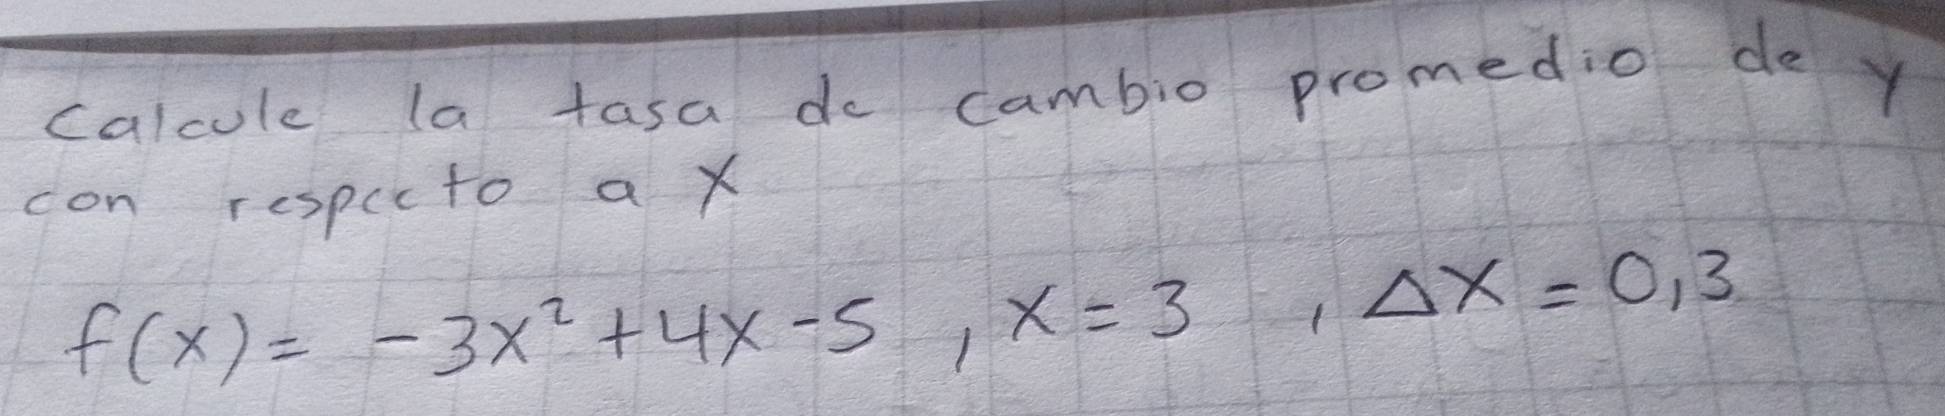 calcule la tasa de cambio promedio de y
con respecto a x
f(x) = -3x² + 4x - 5 , x = 3 , Δx = 0,3